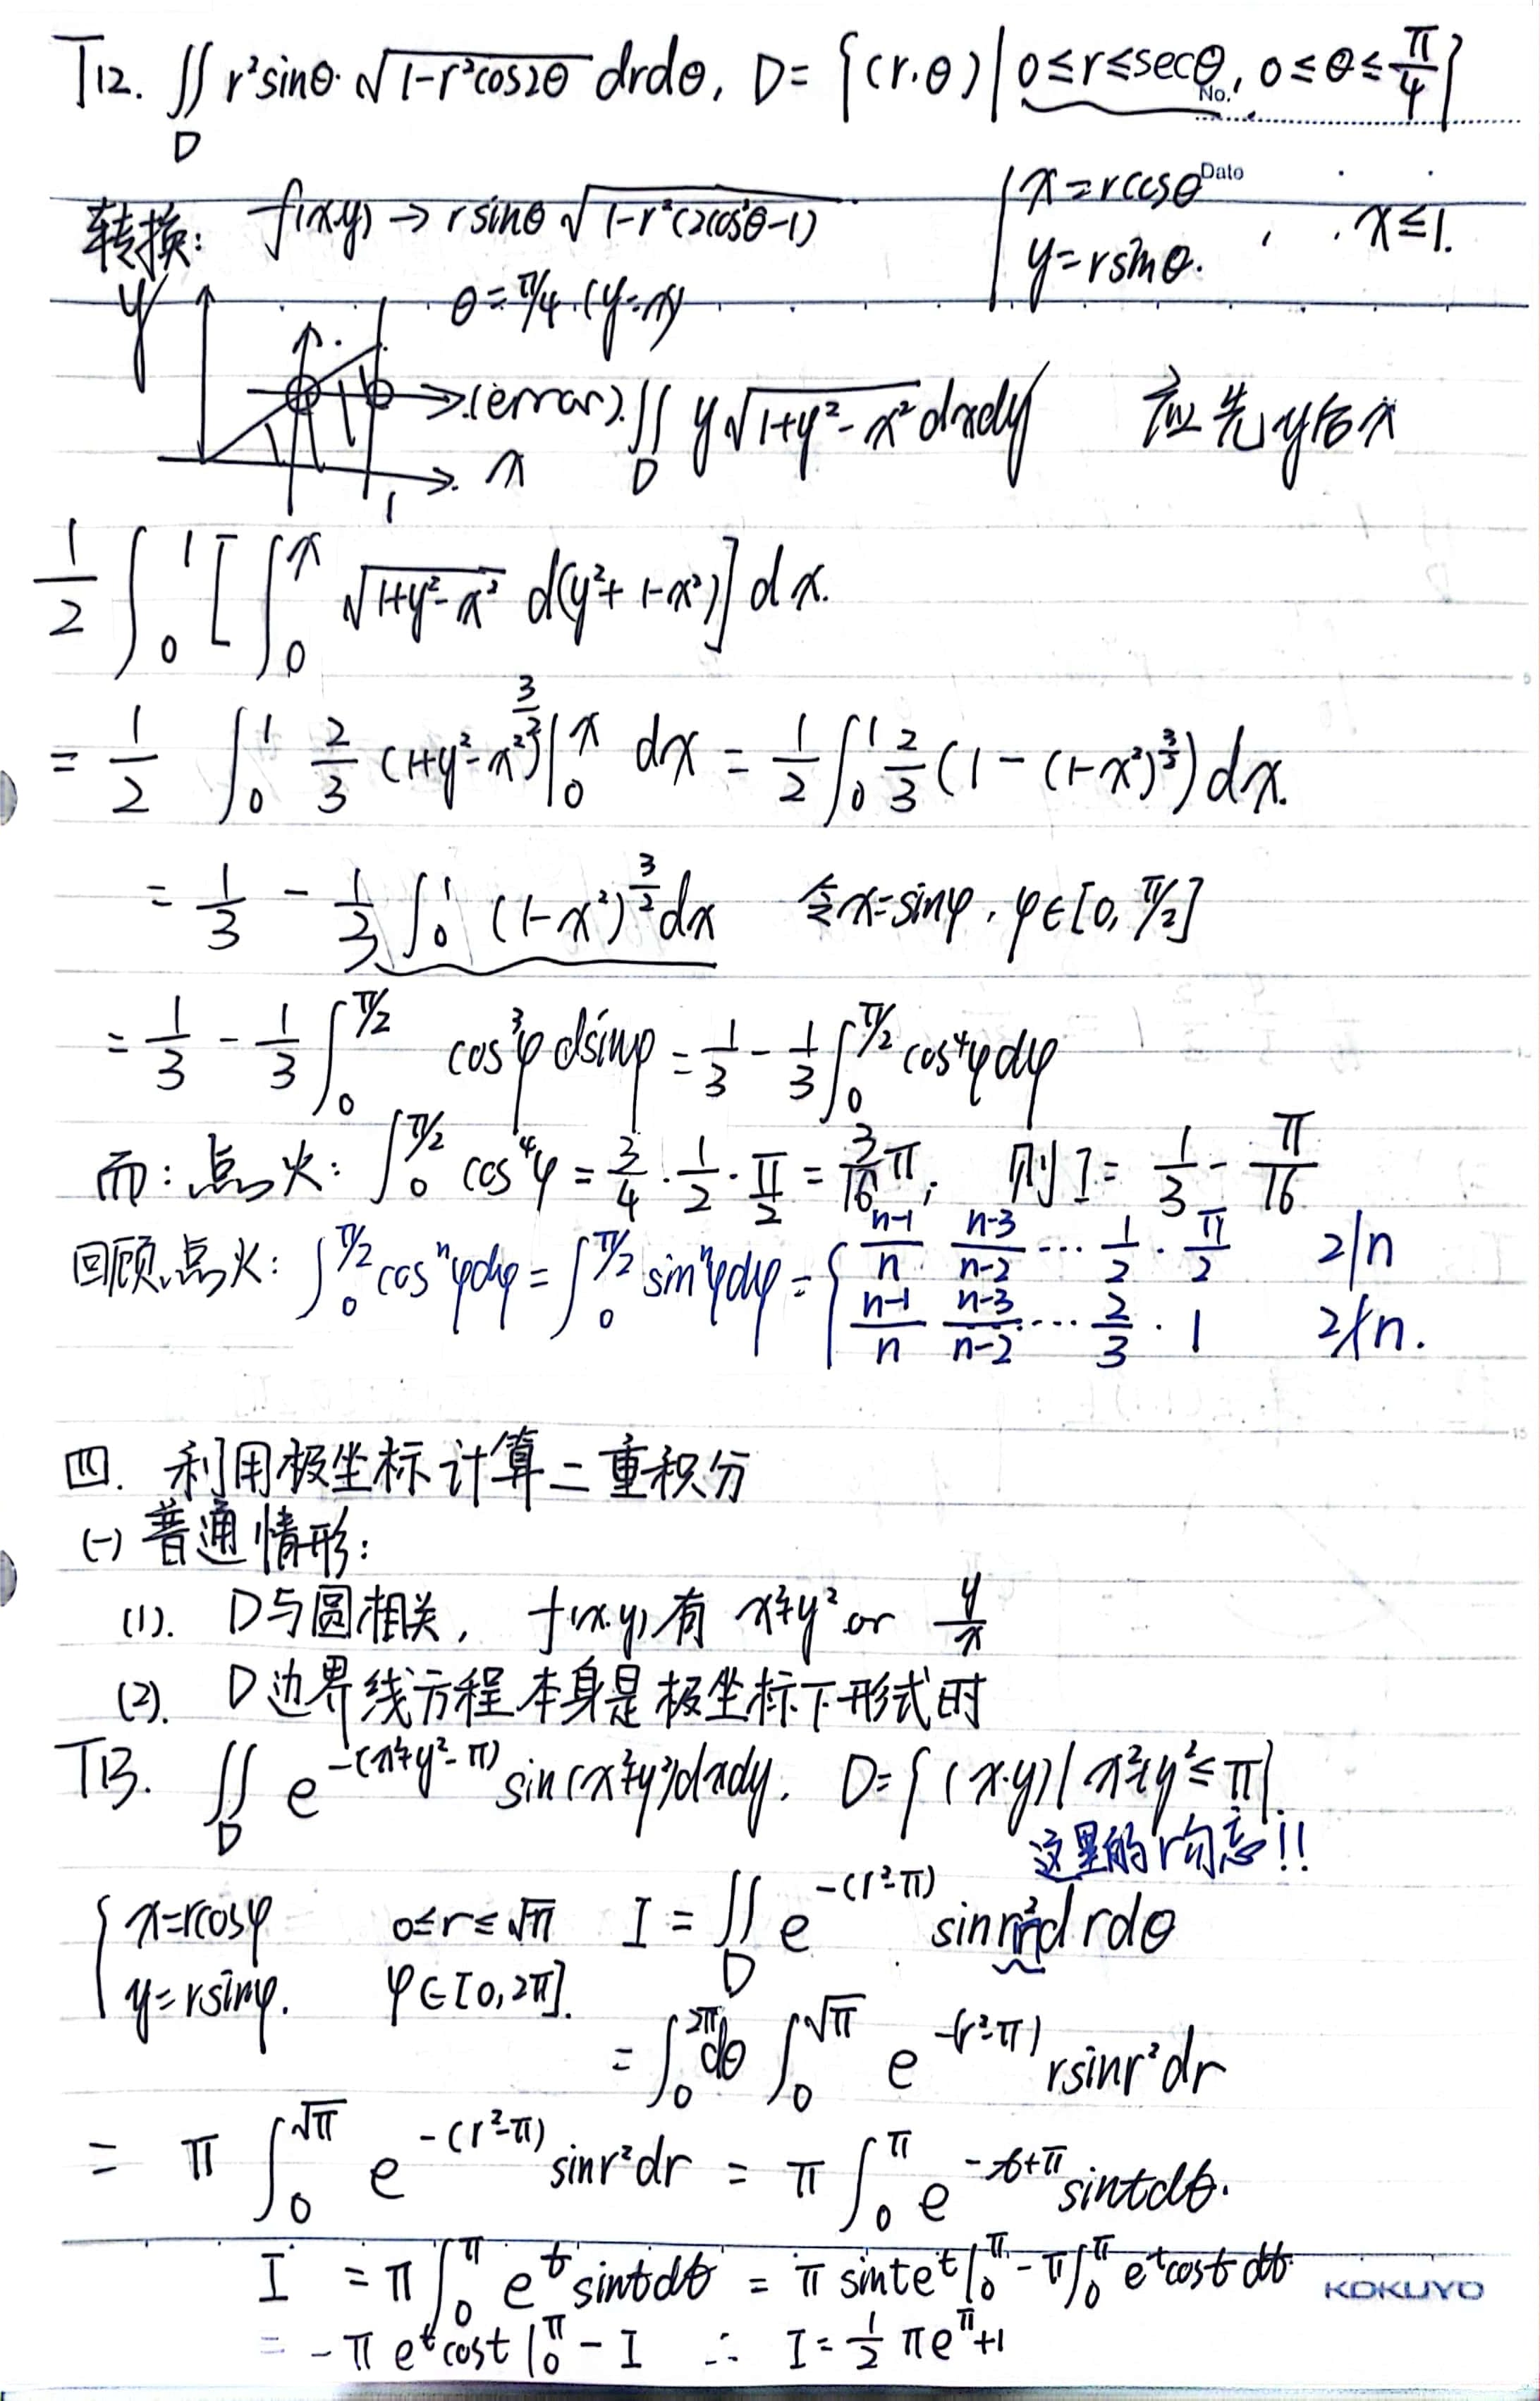 T12. ∬_D r²sinθ·√(1-r²cos2θ) drdθ, D={(r,θ)|0≤r≤secθ, 0≤θ≤π/4}
No.
Date
转换: f(x,y)→rsinθ√(1-r²(2cos²θ-1)) {x=rcosθ y=rsinθ. , x≤1.
y θ=π/4 (y=x)
(error) ∬_D y√(1+y²-x²) dxdy 应先y后x
x
1
1/2 ∫_0^1 [∫_0^x √(1+y²-x²) d(y²+1-x²)] dx.
= 1/2 ∫_0^1 2/3 (1+y²-x²)^(3/2)|_0^x dx = 1/2 ∫_0^1 2/3 (1-(1-x²)^(3/2)) dx.
= 1/3 - 1/3 ∫_0^1 (1-x²)^(3/2) dx 令x=sinφ, φ∈[0, π/2]
= 1/3 - 1/3 ∫_0^(π/2) cos³φ dsinφ = 1/3 - 1/3 ∫_0^(π/2) cos⁴φdφ
而: 点火: ∫_0^(π/2) cos⁴φ = 3/4 · 1/2 · π/2 = 3/16 π; 则 I = 1/3 - π/16
回顾点火: ∫_0^(π/2) cosⁿφdφ = ∫_0^(π/2) sinⁿφdφ = { (n-1)/n (n-3)/(n-2) ⋯ 1/2 · π/2 2|n
(n-1)/n (n-3)/(n-2) ⋯ 2/3 · 1 2∤n.
四. 利用极坐标计算二重积分
(一) 普通情形:
(1). D与圆相关, f(x,y)有 x²+y² or y/x
(2). D边界线方程本身是极坐标下形式时
T13. ∬_D e^(-(x²+y²-π)) sin(x²+y²)dxdy. D={(x,y)|x²+y²≤π}.
这里的r勿忘!!
{x=rcosφ 0≤r≤√π I = ∬_D e^(-(r²-π)) sinr²rdrdθ
y=rsinφ. φ∈[0,2π].
= ∫_0^(2π) dθ ∫_0^(√π) e^(-(r²-π)) rsinr²dr
= π ∫_0^(√π) e^(-(r²-π)) sinr²dr = π ∫_0^π e^(-t+π) sintdt.
I = π∫_0^π e^t sintdt = π sinte^t|_0^π - π∫_0^π e^t cost dt
= -π e^t cost|_0^π - I ∴ I = 1/2 πe^π+1
KOKUYO